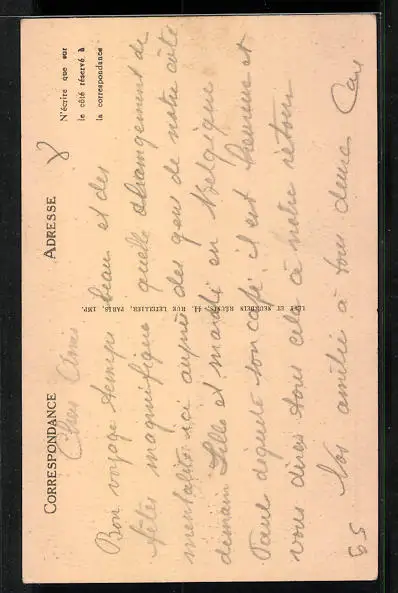 CORRESPONDANCE
ADRESSE
N'écrire que sur
le côté réservé à
la correspondance
Chers Amis
Bon voyage temps beau et des
fêtes magnifique quelle changement de
mentalité ici auprès des gens de notre côté
demain Lille et mardi en Belgique
Paul déguste son café il est heureux et
vous direz tous cela à notre retour
Nos amitié à tous deux
LEVY ET NEURDEIN RÉUNIS, 44, RUE LETELLIER, PARIS, IMP.